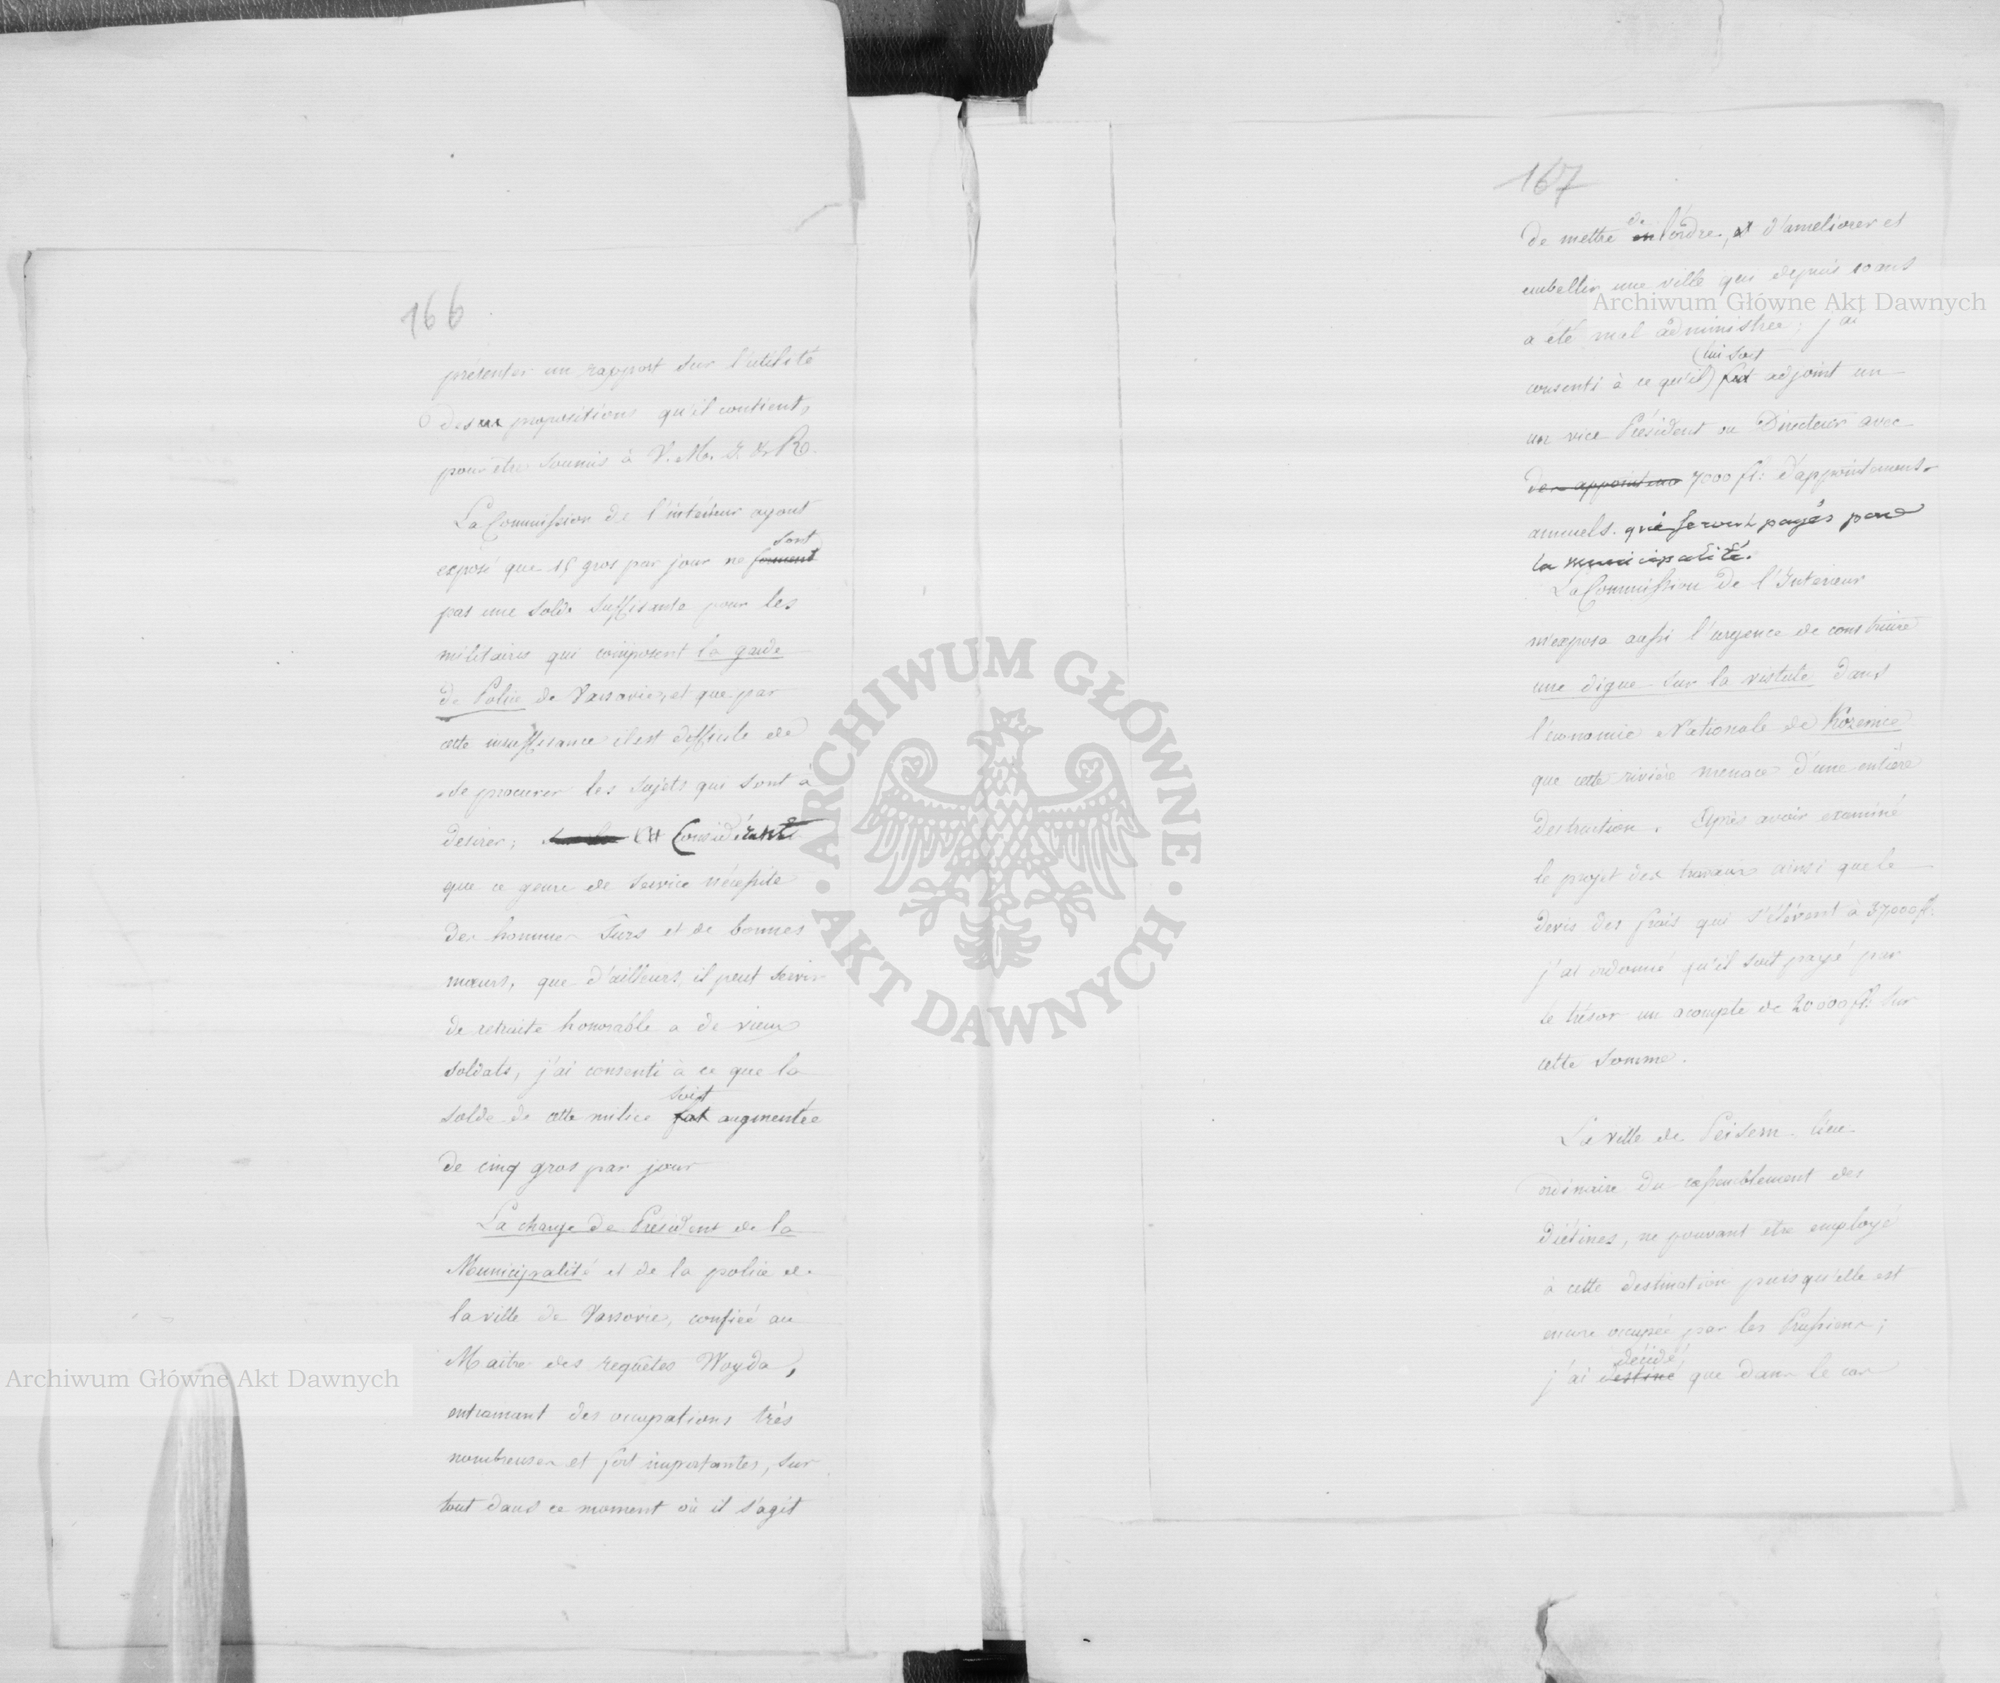 166
présenter un rapport sur l'utilité
des propositions qu'il contient,
pour être soumis à V. M. I. & R.
La Commission de l'intérieur ayant
sont
exposé que 15 gros par jour ne forment
pas une solde suffisante pour les
militaires qui composent la garde
de Police de Varsovie, et que par
cette insuffisance il est difficile de
se procurer les sujets qui sont à
desirer; Considérant
que ce genre de service nécessite
des hommes surs et de bonnes
mœurs, que d'ailleurs il peut servir
de retraite honorable a de vieux
soldats, j'ai consenti à ce que la
soit
solde de cette milice fut augmentée
de cinq gros par jour
La charge de Président de la
Municipalité et de la police de
la ville de Varsovie, confiée au
Maitre des requêtes Woyda,
entrainant des occupations très
nombreuses et fort importantes, sur
tout dans ce moment où il s'agit
167
de
de mettre en l'ordre, et d'ameliorer et
embellir une ville qui depuis 10 ans
a été mal administrée; j'ai
lui soit
consenti à ce qu'il fut adjoint un
un vice Président ou Directeur avec
des appointem 7000 fl: d'appointemens
annuels. qui seront payés par
la municipalité.
La Commission de l'Interieur
m'exposa aussi l'urgence de construire
une digue sur la vistule dans
l'économie Nationale de Kozienice
que cette rivière menace d'une entière
destruction. Après avoir examiné
le projet des travaux ainsi que le
devis des frais qui s'élèvent à 37,000 fl.
j'ai ordonné qu'il soit payé par
le trésor un acompte de 20000 fl. sur
cette somme.
La ville de Peisern lieu
ordinaire du rassemblement des
diétines, ne pouvant etre employé
à cette destination puisqu'elle est
encore occupée par les Prussiens;
décidé
j'ai destiné que dans le cas
Archiwum Główne Akt Dawnych
Archiwum Główne Akt Dawnych
ARCHIWUM GŁÓWNE
AKT DAWNYCH